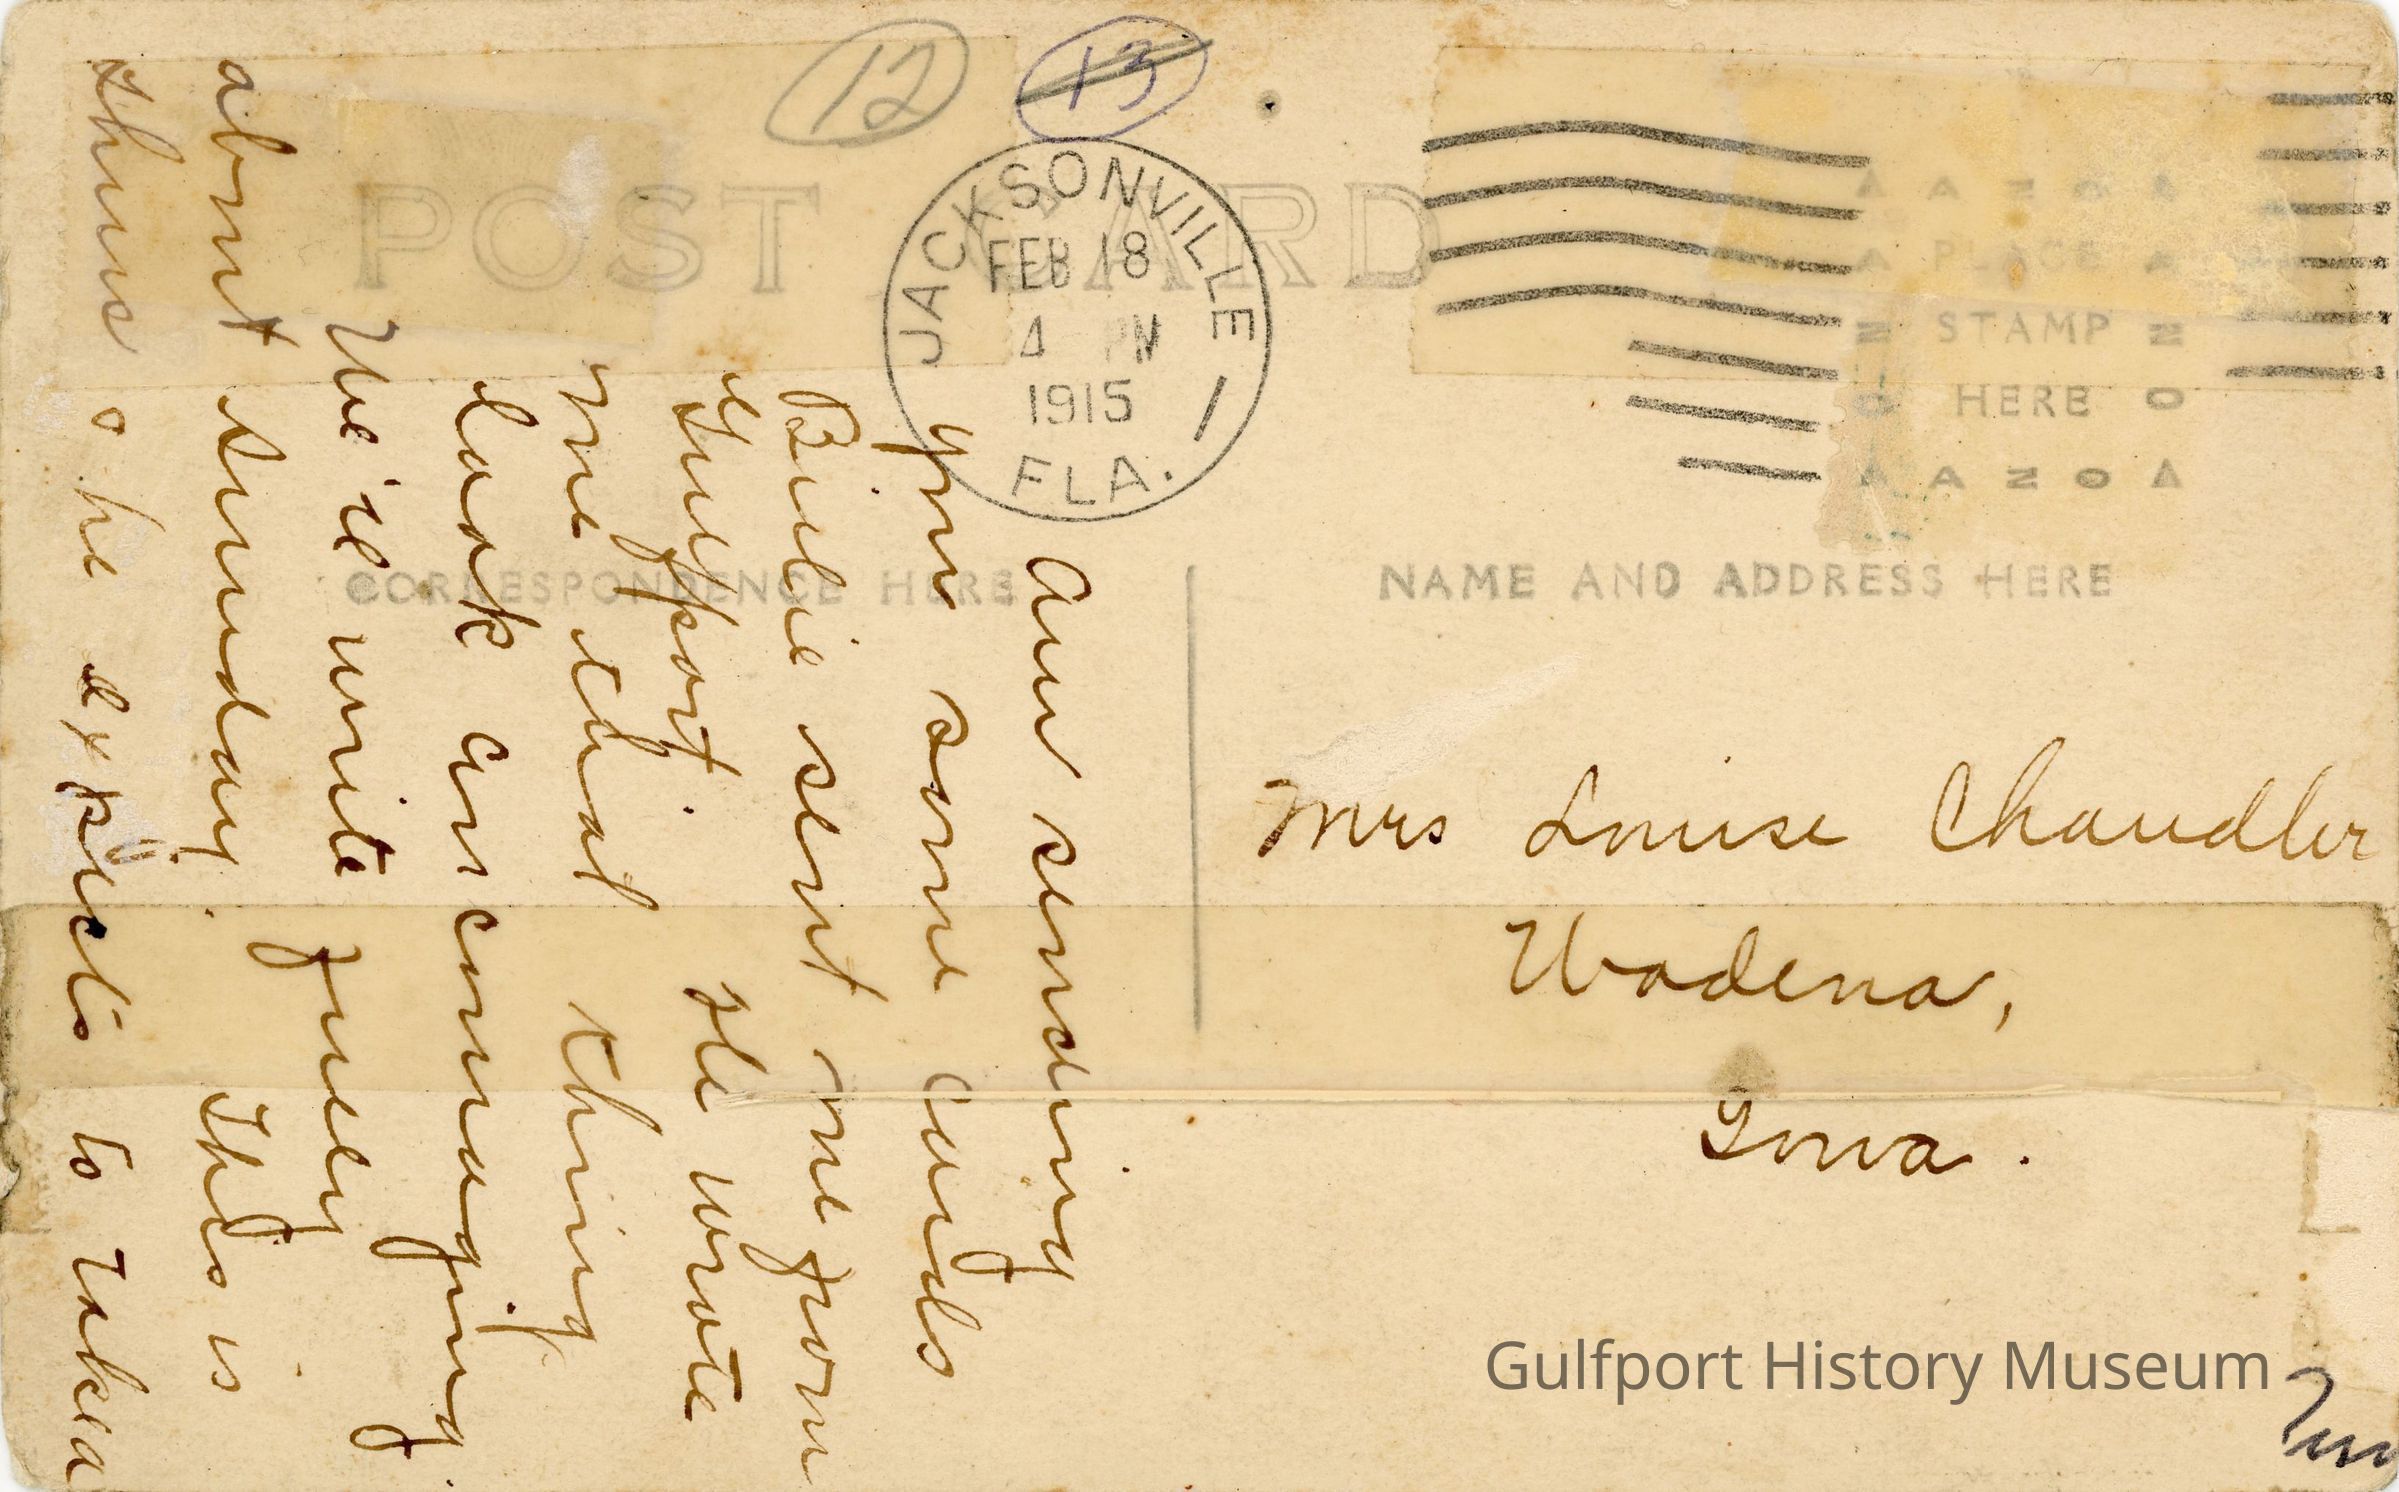 12
13
POST CARD
JACKSONVILLE
FEB 18
4 PM
1915
FLA.
PLACE
STAMP
HERE
AZO
CORRESPONDENCE HERE
NAME AND ADDRESS HERE
Am sending
you some cards
Billie sent me from
Gulfport. He wrote
me that thing
look encouraging.
We'll write fully
about Sunday. This is
he expects to take a
Mrs Louise Chandler
Wadena,
Iowa.
Gulfport History Museum